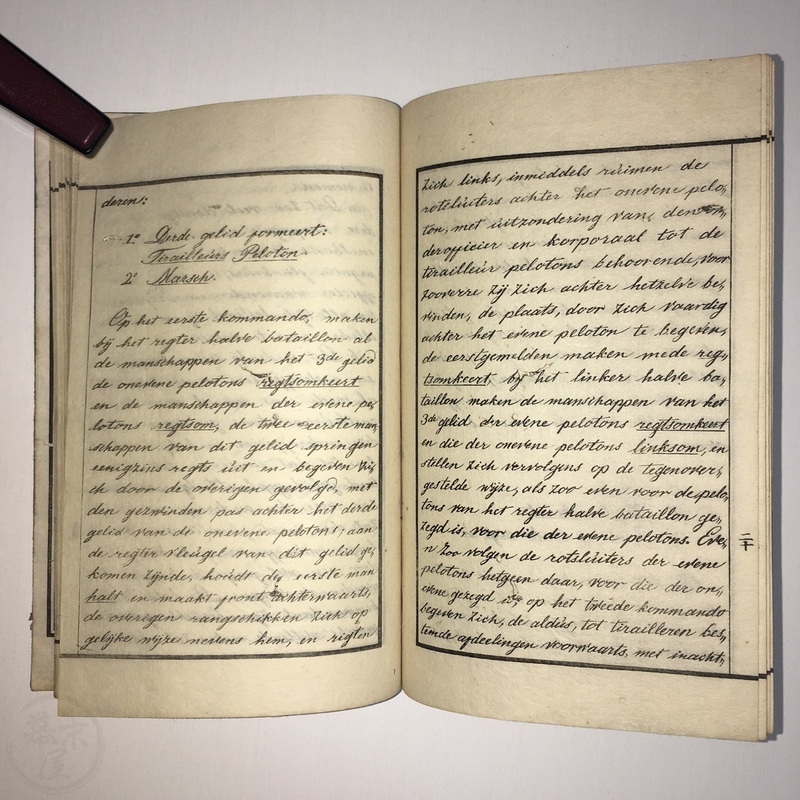 deren:
1e Derde gelid formeert:
Tirailleurs Peloton.
2e Marsch.
Op het eerste kommando, maken
bij het regter halve bataillon al
de manschappen van het 3de gelid
de onevene pelotons regtsomkeert
en de manschappen der evene pe,,
lotons regtsom, de twee eerste man,,
schappen van dit gelid springen
eenigzins regts uit en begeven zi,,
ch door de overigen gevolgd, met
den gezwinden pas achter het derde
gelid van de onevene pelotons; aan
de regter vleugel van dit gelid ge,,
komen zijnde, houdt de eerste man
halt en maakt front achterwaarts,
de overigen rangschikken zich op
gelijke wijze nevens hem, en rigten
zich links, inmiddels ruimen de
rotsluiters achter het onevene pelo,,
ton, met uitzondering van den on,,
derofficier en korporaal tot de
tirailleur pelotons behoorende, voor
zooverre zij zich achter hetzelve be,,
vinden, de plaats, door zich vaardig
achter het evene peloton te begeven,
de eerstgemelden maken mede regt,,
tsomkeert, bij het linker halve ba,,
taillon maken de manschappen van het
3de gelid der evene pelotons regtsomkeert
en die der onevene pelotons linksom, en
stellen zich vervolgens op de tegenover,,
gestelde wijze, als zoo even voor de pelo,,
tons van het regter halve bataillon ge,,
zegd is, voor die der evene pelotons. Eve,,
n zoo volgen de rotsluiters der evene
pelotons hetgeen daar, voor die der on,,
evene gezegd is, op het tweede kommando
begeven zich, de aldus, tot tirailleren bes,,
temde afdeelingen voorwaarts, met inacht,,
二十